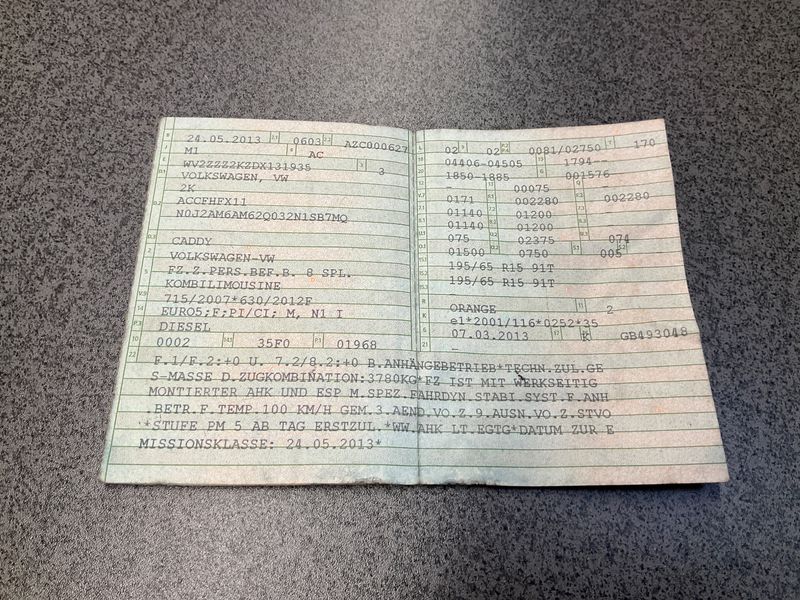 24.05.2013 0603 AZC000627
M1 AC
WV2ZZZ2KZDX131935 3
VOLKSWAGEN, VW
2K
ACCFHFX11
N0J2AM6AM62Q032N1SB7MQ
CADDY
VOLKSWAGEN-VW
FZ.Z.PERS.BEF.B. 8 SPL.
KOMBILIMOUSINE
715/2007*630/2012F
EURO5;F;PI/CI; M, N1 I
DIESEL
0002 35F0 01968
02 02 0081/02750 170
04406-04505 1794--
1850-1885 001576
- 00075 -
0171 002280 002280
01140 01200
01140 01200
075 02375 074
01500 0750 005
195/65 R15 91T
195/65 R15 91T
ORANGE 2
e1*2001/116*0252*35
07.03.2013 K GB493048
-
F.1/F.2:+0 U. 7.2/8.2:+0 B.ANHÄNGEBETRIEB*TECHN.ZUL.GE
S-MASSE D.ZUGKOMBINATION:3780KG*FZ IST MIT WERKSEITIG
MONTIERTER AHK UND ESP M.SPEZ.FAHRDYN.STABI.SYST.F.ANH
.BETR.F.TEMP.100 KM/H GEM.3.AEND.VO.Z.9.AUSN.VO.Z.STVO
*STUFE PM 5 AB TAG ERSTZUL.*WW.AHK LT.EGTG*DATUM ZUR E
MISSIONSKLASSE: 24.05.2013*